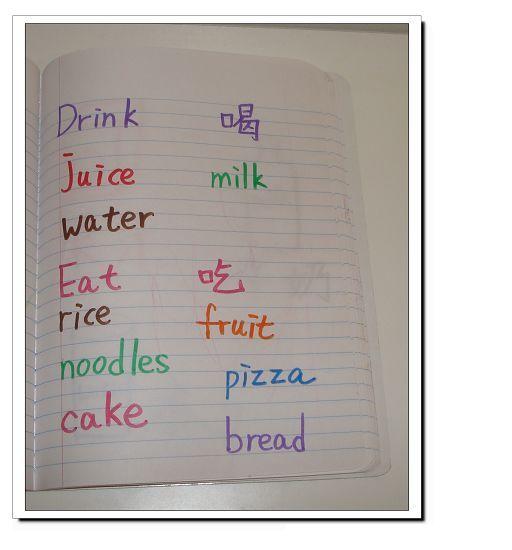 Drink 喝
juice milk
water
Eat 吃
rice fruit
noodles pizza
cake bread